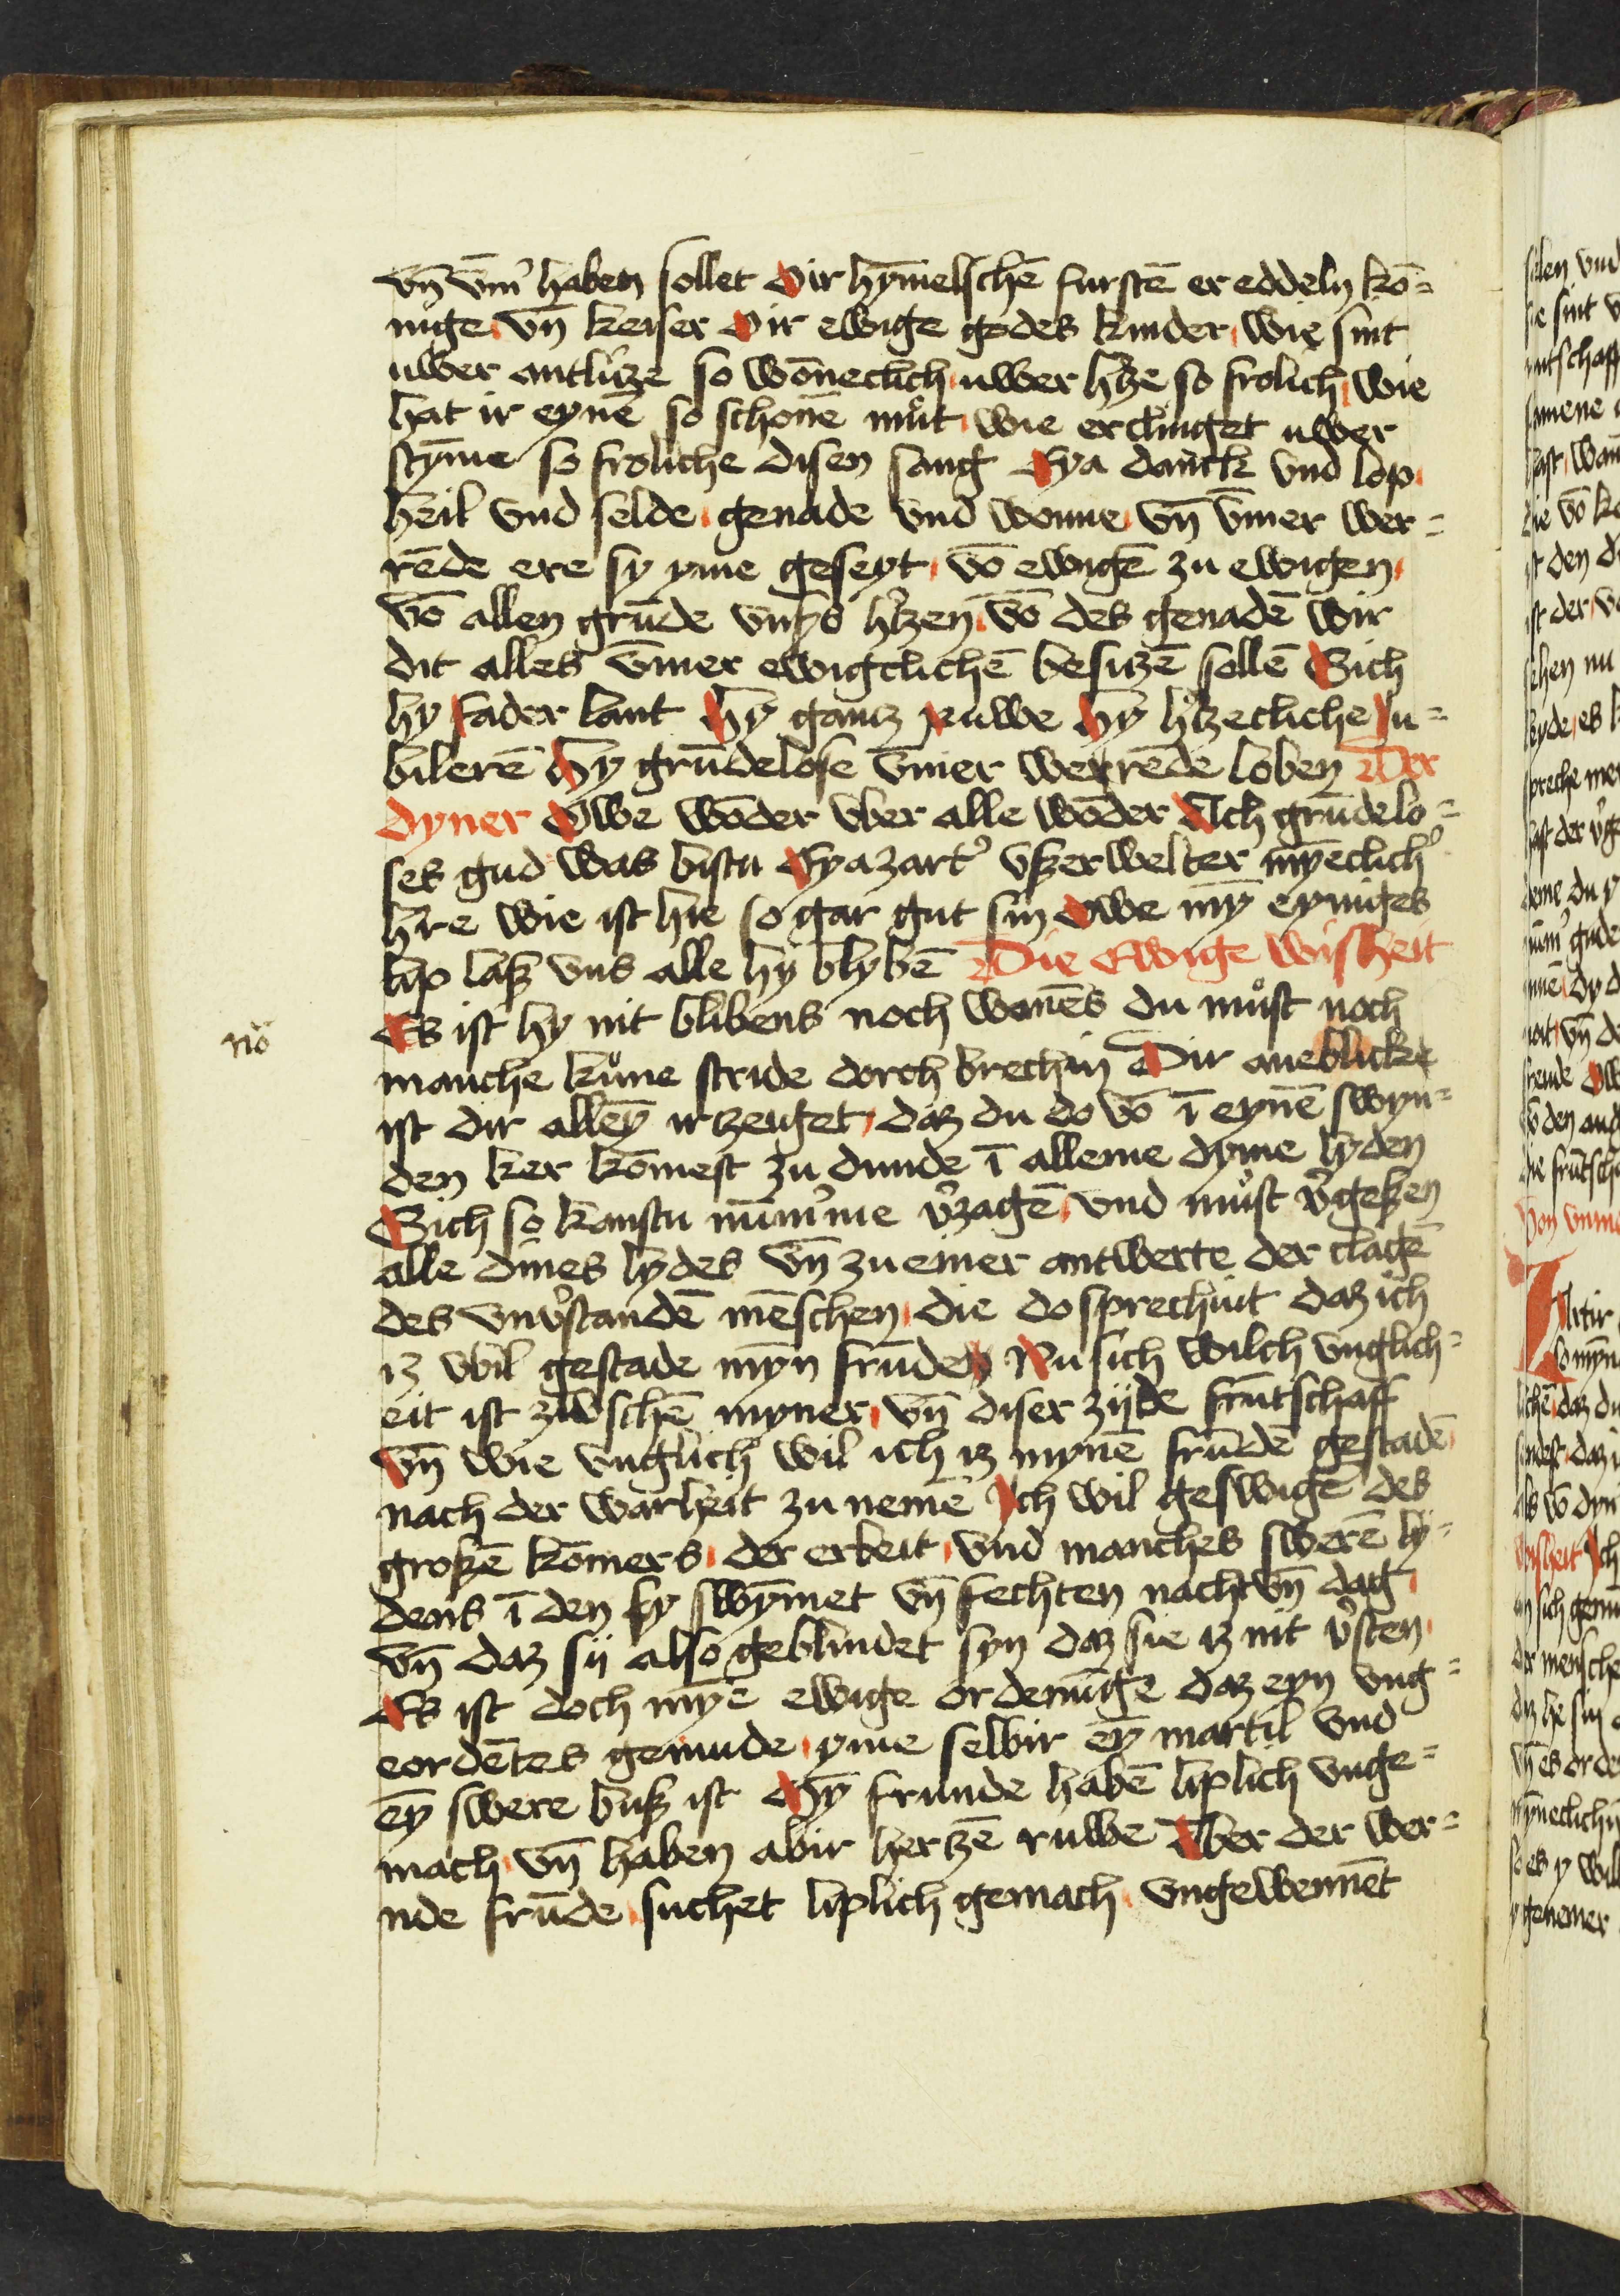 vn̄ vm̄ haben sollet Oir hȳmelschē furstē er eddeln kō=
nige vn̄ keiser O ir ewige godes kinder wie sint
uwer antlicze so wōneclich uwer hʾcze so frolich wie
hat ir eynē so schonē můt wie erclinget uwer
stȳme so froliche disen sang Eya danck vnd lop
heil vnd selde genade vnd wonne vn̄ v̄mer wer=
rēde ere sy yme geseyt vō ewigē zu ewigen
vō allen grūde vnsʾs hʾczen vō des genadē wir
dit alles v̄mer ewigclichē besitzē sollē Sich
hy fader lant Hy gantz Ruwe Hy hʾczecliche Ju=
bilerē Hy grūdelose v̄mer werrēde loben Der
dyner Owe wōder vber alle wōder Ach grūdelo=
ses gud was bistu Eya zartʾ vßerwelter mȳeclichʾ
hʾre wie ist hie so gar gut sin Owe mȳ eyniges
lip laß vns alle hy blybē Die Ewige wißheit
Es ist hy nit blibens noch wonēs du můst noch
manche kůne stride dorch brechin Dir aneblicke
ist dir alley̅ irzeuget daz du do vō ī eynē swyn=
den ker kōmest zu dunde ī alleme dyme lyden
Sich so kanstu nūmʾme vʾzagē vnd můst vʾgeßen
alle dines lydes vn̄ zu einer antwerte der clagē
des vnvʾstandē mēschen die do sprechint daz ich
iz vbil gestade myn frūden Nu sich wilch vnglich=
eit ist zwschē myner vn̄ diser zijde frūtschaff
vn̄ wie vnglich wil ich iz mynē frūdē gestadē
nach der warheit zu nemē Ich wil geswigē des
großē kōmers der erbeit vnd manches swerē ly=
dens ī den sy swȳmet vn̄ fechten nacht vn̄ dag
vn̄ daz sij also geblindet syn daz sie iz nit vʾsten
Es ist doch mȳe ewige ordenūge daz eyn vng=
eordētes gemude yme selbir eȳ martil vnd
eȳ swere buß ist Mȳ frunde habē liplich vnge=
mach vn̄ haben abir hertzē ruwe Aber der wer=
nde frūde suchet liplich gemach vngewennēt
nō